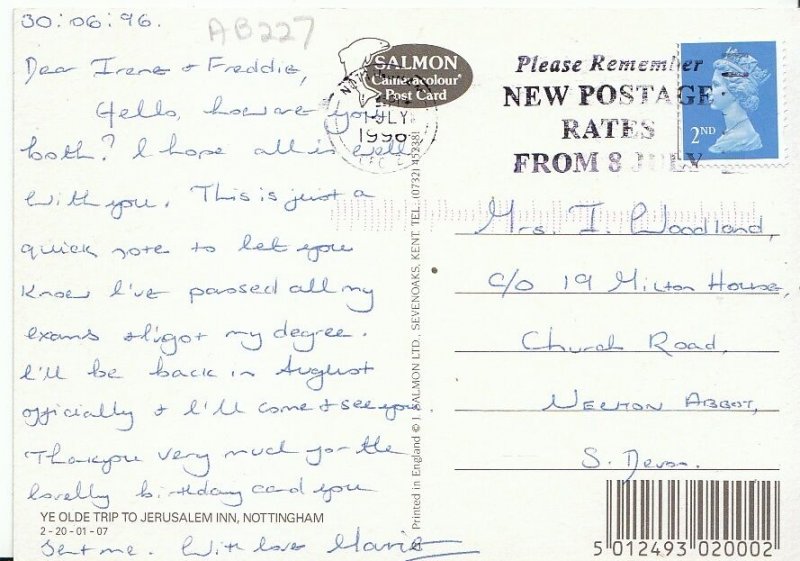 30:06:96.
AB227
Dear Irene + Freddie,
Hello, how are you
both? I hope all is well
with you. This is just a
quick note to let you
know I've passed all my
exams + I've got my degree.
I'll be back in August
officially + I'll come + see you.
Thankyou very much for the
lovelly birthday card you
sent me. With love Marie
YE OLDE TRIP TO JERUSALEM INN, NOTTINGHAM
2-20-01-07
SALMON
Cameracolour®
Post Card
Printed in England © J. SALMON LTD., SEVENOAKS, KENT. TEL: (0732) 452381
JULY
1996
Please Remember
NEW POSTAGE
RATES
FROM 8 JULY
2ND
Mrs. I. Woodland,
c/o 19 Milton House,
Church Road,
Newton Abbot,
S. Devon.
5 012493 020002